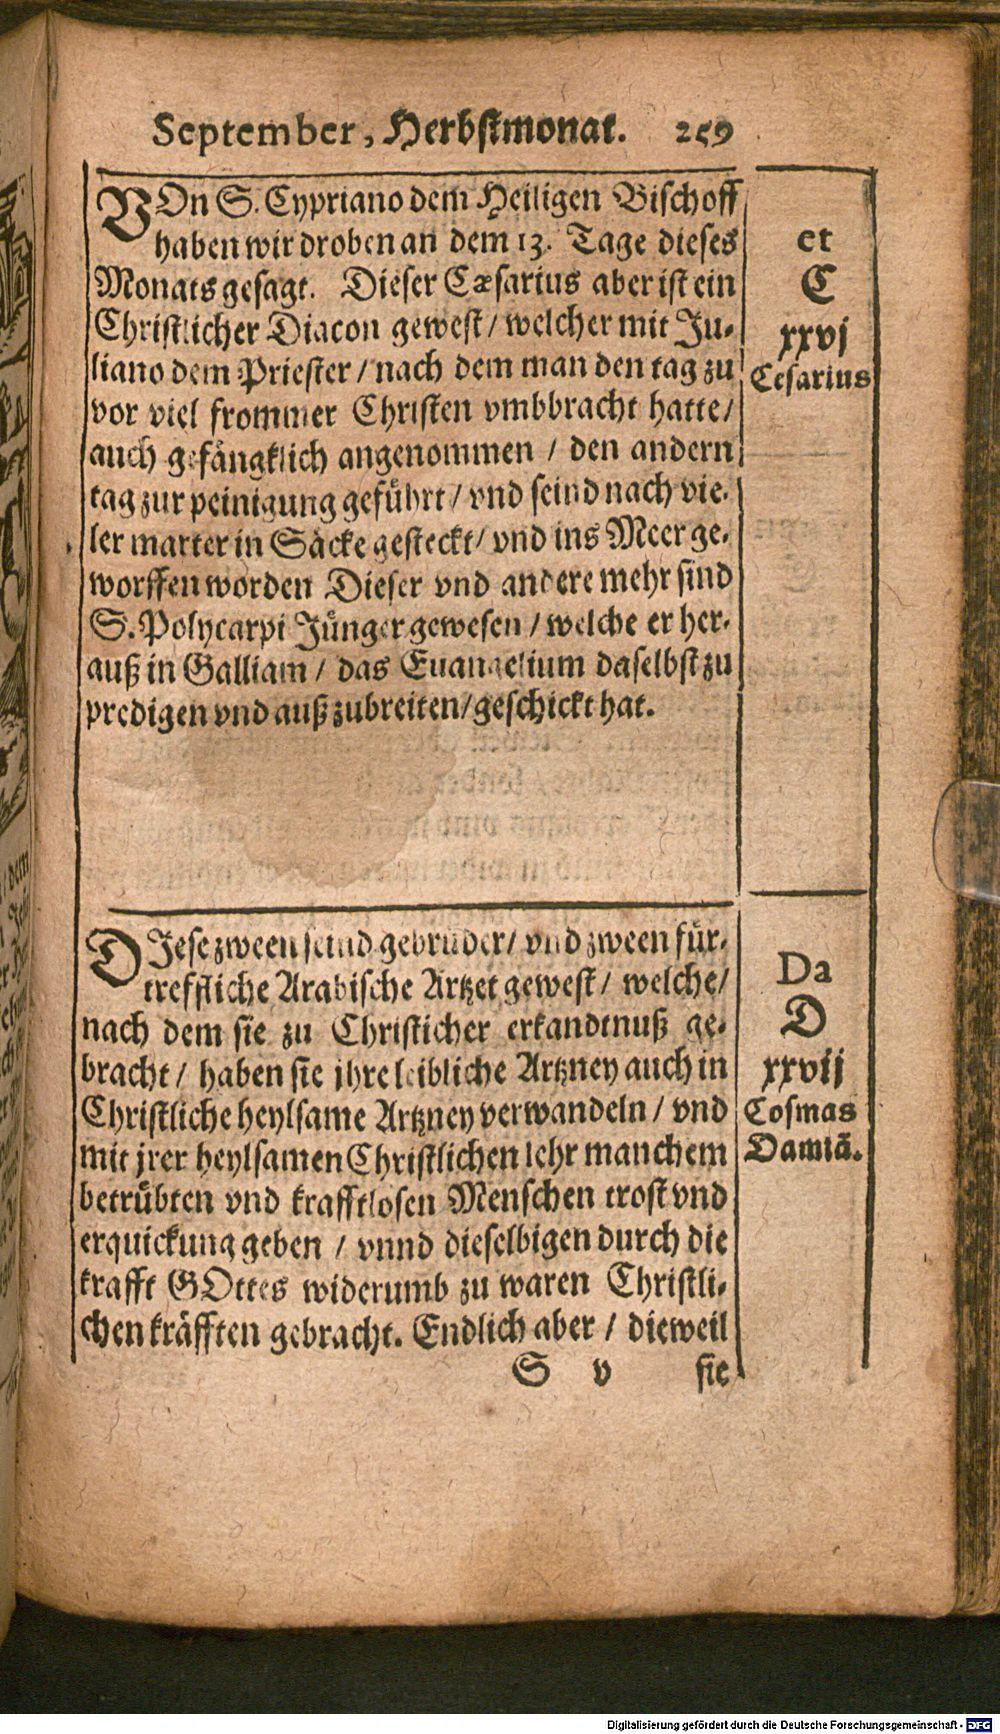 September, Herbstmonat. 259
VOn S. Cypriano dem Heiligen Bischoff
haben wir droben an dem 13. Tage dieses
Monats gesagt. Dieser Cæsarius aber ist ein
Christlicher Diacon gewest / welcher mit Ju-
liano dem Priester / nach dem man den tag zu
vor viel frommer Christen vmbbracht hatte /
auch gefängklich angenommen / den andern
tag zur peinigung geführt / vnd seind nach vie-
ler marter in Säcke gesteckt / vnd ins Meer ge-
worffen worden Dieser vnd andere mehr sind
S. Polycarpi Jünger gewesen / welche er her-
auß in Galliam / das Euangelium daselbst zu
predigen vnd auß zubreiten / geschickt hat.
et
C
xxvj
Cesarius
DJese zween seind gebrüder / vnd zween für-
treffliche Arabische Artzet gewest / welche /
nach dem sie zu Christicher erkandtnuß ge-
bracht / haben sie jhre leibliche Artzney auch in
Christliche heylsame Artzney verwandeln / vnd
mit jrer heylsamen Christlichen lehr manchem
betrübten vnd krafftlosen Menschen trost vnd
erquickung geben / vnnd dieselbigen durch die
krafft GOttes widerumb zu waren Christli-
chen kräfften gebracht. Endlich aber / dieweil
S v sie
Da
D
xxvij
Cosmas
Damiā.
Digitalisierung gefördert durch die Deutsche Forschungsgemeinschaft - DFG